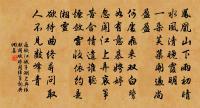 鳳凰山下雨初晴
水風清晚霞明
一朵芙蕖開過尚
盈盈
何處飛來雙白鷺
如有意慕娉婷
忽聞江上弄哀箏
苦含情遣誰聽
煙斂雲收依約是
湘靈
欲待曲終尋問取
人不見數峰青